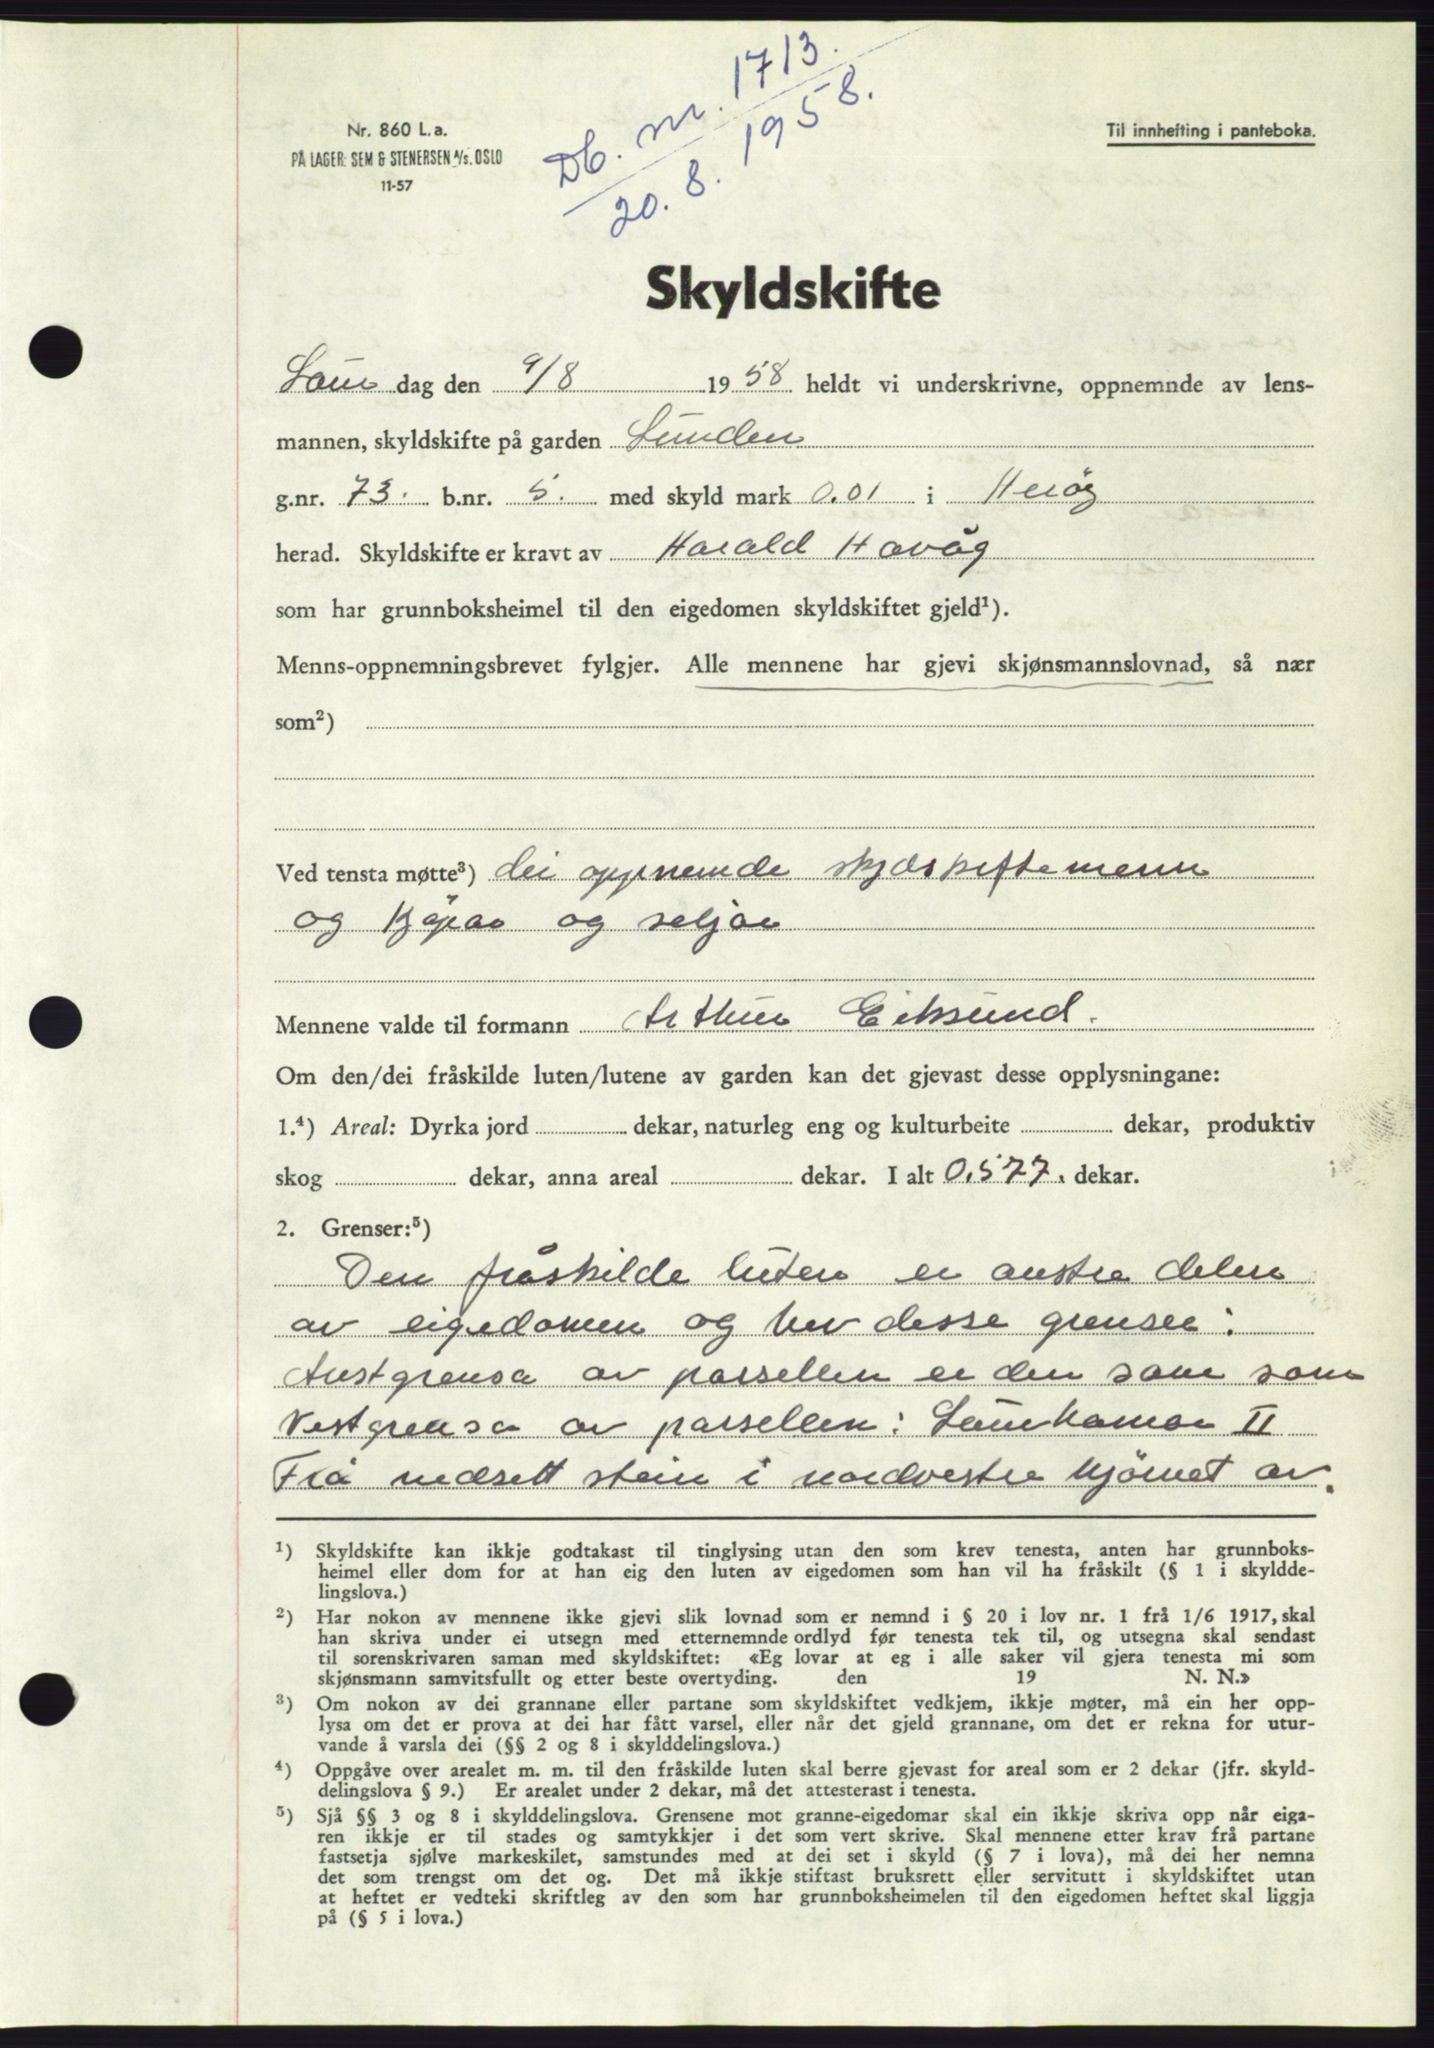 Db. nr. 1713.
20. 8. 1958.
Nr. 860 L.a.
PÅ LAGER: SEM & STENERSEN A/S. OSLO
11-57
Til innhefting i panteboka.
Skyldskifte
Laur dag den 9/8 1958 heldt vi underskrivne, oppnemnde av lens-
mannen, skyldskifte på garden Sunden
g.nr. 73. b.nr. 5. med skyld mark 0.01 i Herøy
herad. Skyldskifte er kravt av Harald Havåg
som har grunnboksheimel til den eigedomen skyldskiftet gjeld¹).
Menns-oppnemningsbrevet fylgjer. Alle mennene har gjevi skjønsmannslovnad, så nær
som²)
Ved tensta møtte³) dei oppnemde skjøskiftemenn
og kjøpar og seljar
Mennene valde til formann Arthur Eiksund.
Om den/dei fråskilde luten/lutene av garden kan det gjevast desse opplysningane:
1.⁴) Areal: Dyrka jord dekar, naturleg eng og kulturbeite dekar, produktiv
skog dekar, anna areal dekar. I alt 0,577. dekar.
2. Grenser:⁵)
Den fråskilde luten er austre delen
av eigedomen og hev desse grenser:
Austgrensa av parsellen er den same som
Vestgrensa av parsellen: Saunhamar II
Frå nedsett stein i nordvestre hjörnet av.
¹) Skyldskifte kan ikkje godtakast til tinglysing utan den som krev tenesta, anten har grunnboks-
heimel eller dom for at han eig den luten av eigedomen som han vil ha fråskilt (§ 1 i skyldde-
lingslova.)
²) Har nokon av mennene ikke gjevi slik lovnad som er nemnd i § 20 i lov nr. 1 frå 1/6 1917, skal
han skriva under ei utsegn med etternemnde ordlyd før tenesta tek til, og utsegna skal sendast
til sorenskrivaren saman med skyldskiftet: «Eg lovar at eg i alle saker vil gjera tenesta mi som
skjønsmann samvitsfullt og etter beste overtyding. den 19 N. N.»
³) Om nokon av dei grannane eller partane som skyldskiftet vedkjem, ikkje møter, må ein her opp-
lysa om det er prova at dei har fått varsel, eller når det gjeld grannane, om det er rekna for utur-
vande å varsla dei (§§ 2 og 8 i skylddelingslova.)
⁴) Oppgåve over arealet m. m. til den fråskilde luten skal berre gjevast for areal som er 2 dekar (jfr. skyld-
delingslova § 9.) Er arealet under 2 dekar, må det attesterast i tenesta.
⁵) Sjå §§ 3 og 8 i skylddelingslova. Grensene mot granne-eigedomar skal ein ikkje skriva opp når eiga-
ren ikkje er til stades og samtykkjer i det som vert skrive. Skal mennene etter krav frå partane
fastsetja sjølve markeskilet, samstundes med at dei set i skyld (§ 7 i lova), må dei her nemna
det som trengst om det og. Det må ikkje stiftast bruksrett eller servitutt i skyldskiftet utan
at heftet er vedteki skriftleg av den som har grunnboksheimelen til den eigedomen heftet skal liggja
på (§ 5 i lova.)